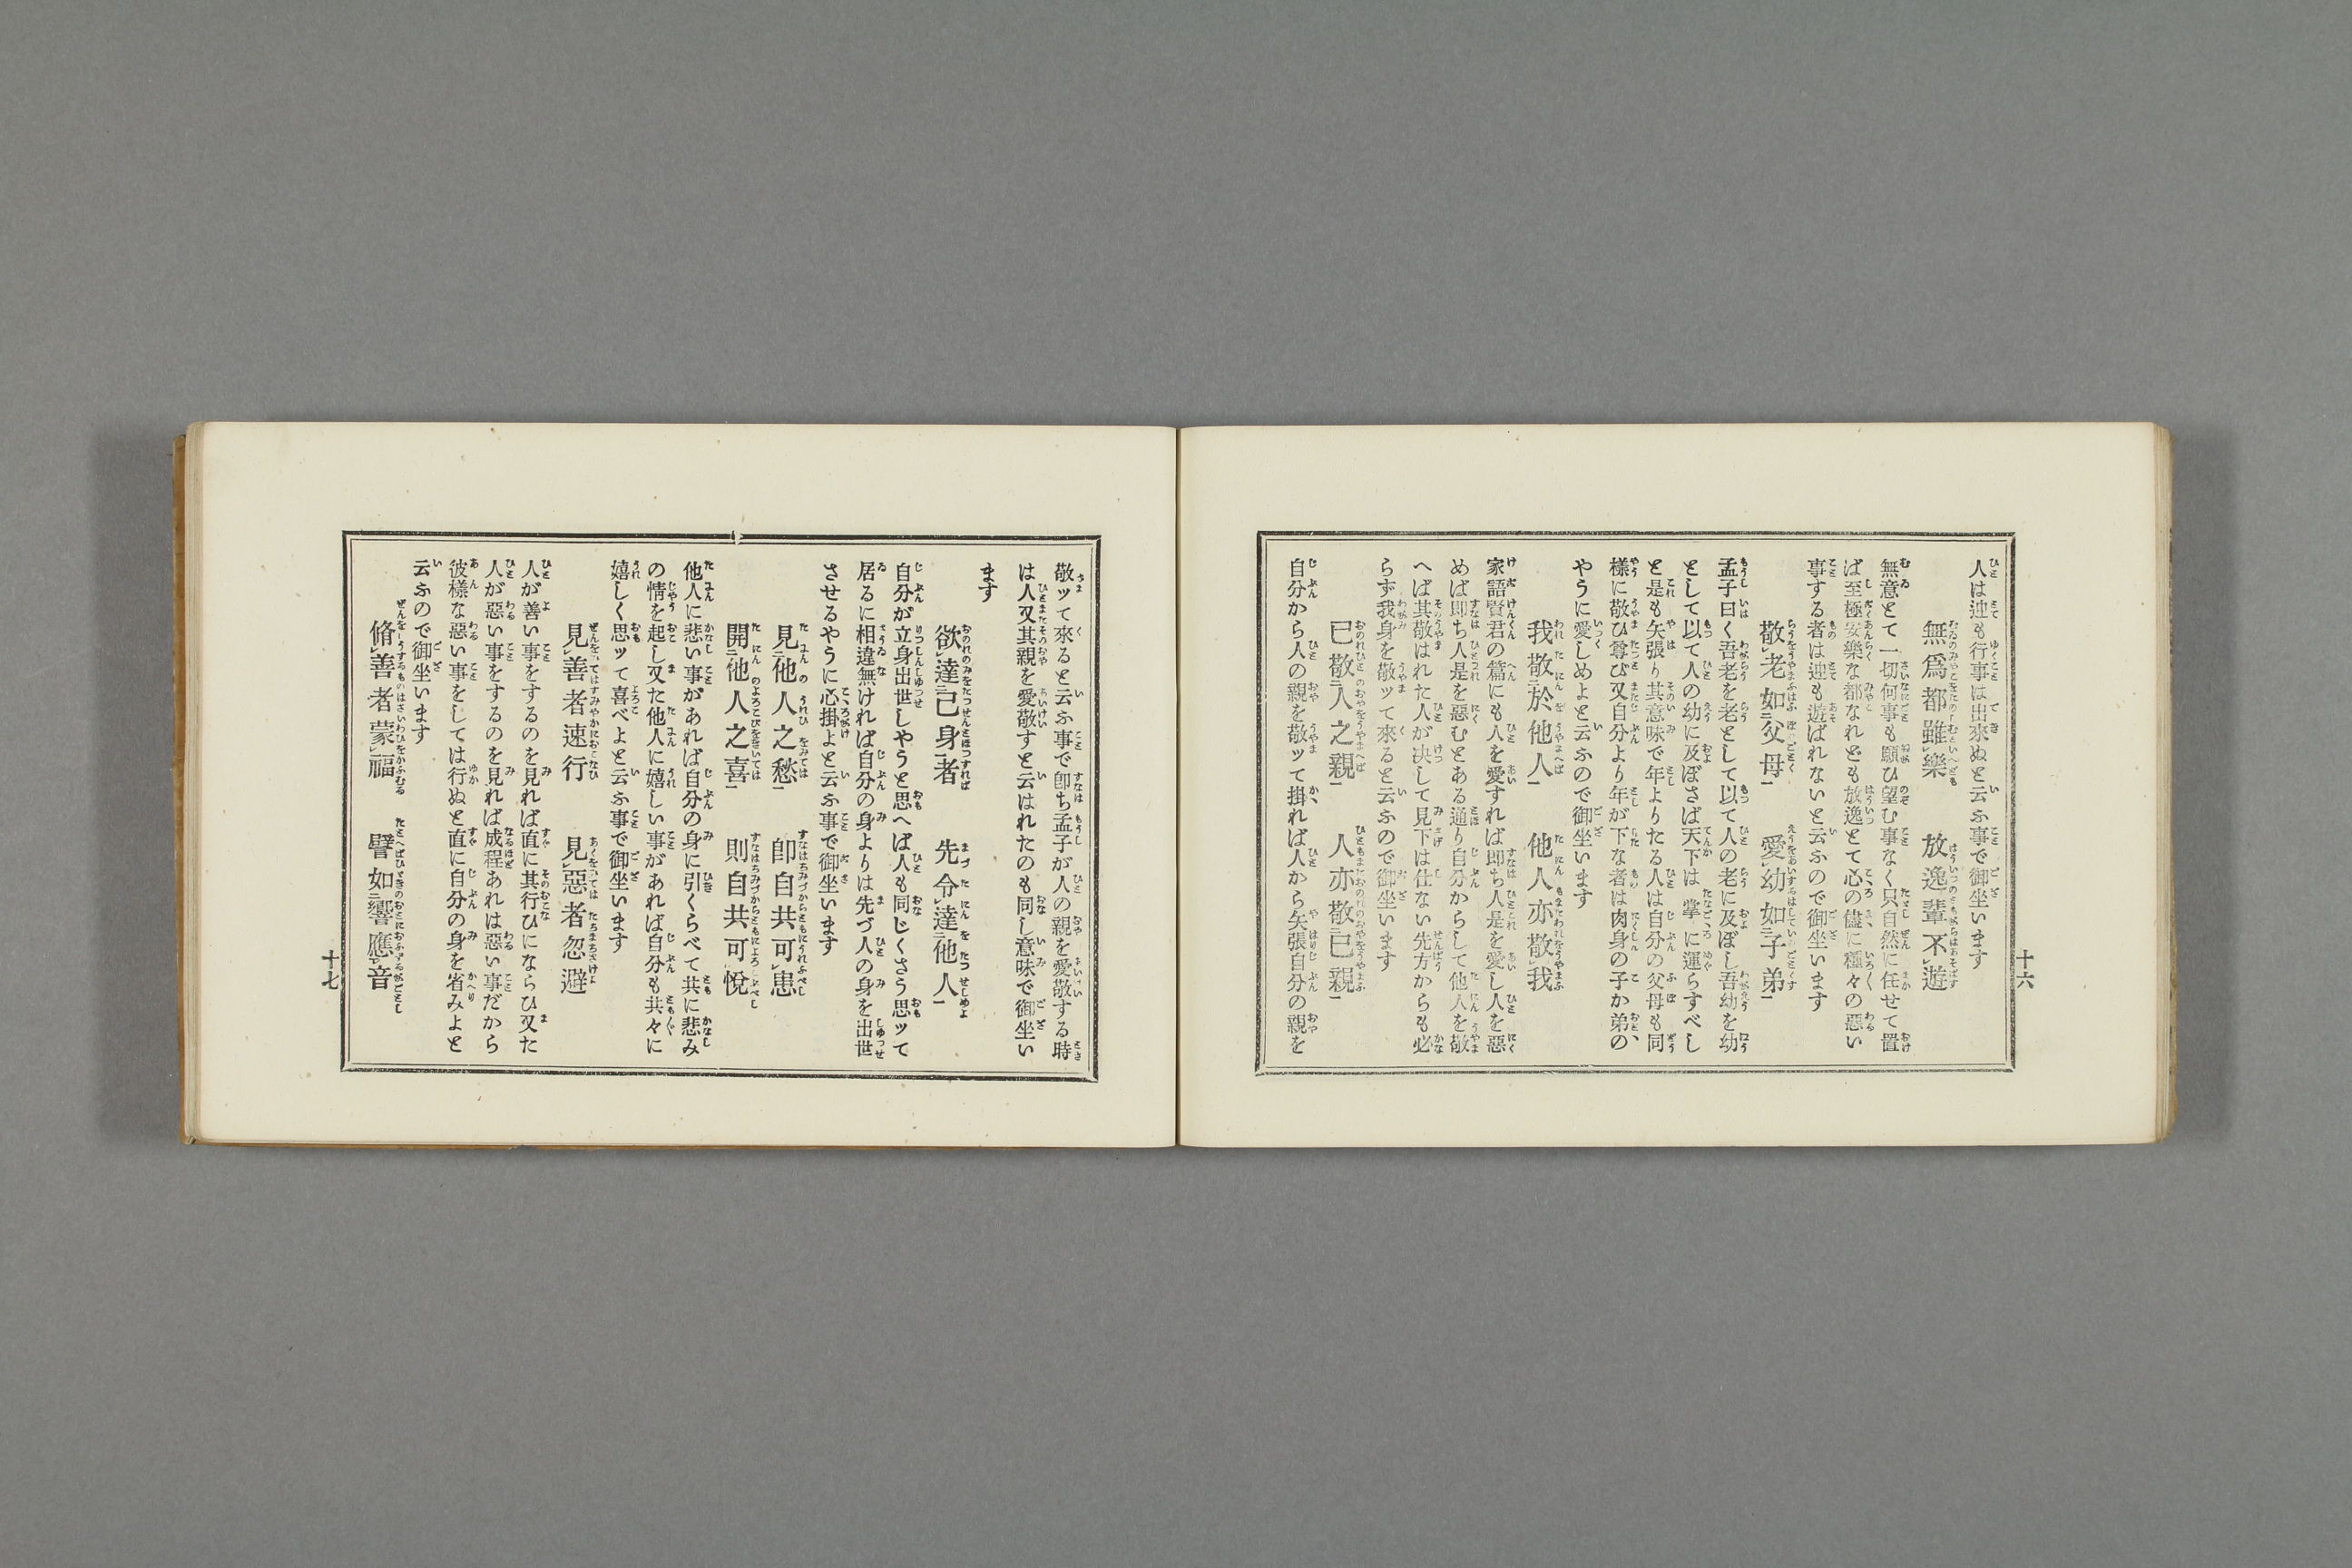 十六
人は迚も行事は出來ぬと云ふ事で御坐います
無爲都雖樂　放逸輩不遊
無意とて一切何事も願ひ望む事なく只自然に任せて置
ば至極安樂な都なれども放逸とて心の儘に種々の惡い
事する者は迚も遊ばれないと云ふので御坐います
敬老如父母　愛幼如子弟
孟子曰く吾老を老として以て人の老に及ぼし吾幼を幼
として以て人の幼に及ぼさば天下は掌に運らすべし
と是も矢張り其意味で年よりたる人は自分の父母も同
樣に敬ひ尊び又自分より年が下な者は肉身の子か弟の
やうに愛しめよと云ふので御坐います
我敬於他人　他人亦敬我
家語賢君の篇にも人を愛すれば即ち人是を愛し人を惡
めば即ち人是を惡むとある通り自分からして他人を敬
へば其敬はれた人が決して見下は仕ない先方からも必
らず我身を敬ッて來ると云ふので御坐います
已敬人之親　人亦敬已親
自分から人の親を敬ッて掛れば人から矢張自分の親を
敬ッて來ると云ふ事で卽ち孟子が人の親を愛敬する時
は人又其親を愛敬すと云はれたのも同し意味で御坐い
ます
欲達己身者　先令達他人
自分が立身出世しやうと思へば人も同じくさう思ッて
居るに相違無ければ自分の身よりは先づ人の身を出世
させるやうに心掛よと云ふ事で御坐います
見他人之愁　卽自共可患
開他人之喜　則自共可悅
他人に悲い事があれば自分の身に引くらべて共に悲み
の情を起し又た他人に嬉しい事があれば自分も共々に
嬉しく思ッて喜べよと云ふ事で御坐います
見善者速行　見惡者忽避
人が善い事をするのを見れば直に其行ひにならひ又た
人が惡い事をするのを見れば成程あれは惡い事だから
彼樣な惡い事をしては行ぬと直に自分の身を省みよと
云ふので御坐います
脩善者蒙福　譬如響應音
十七